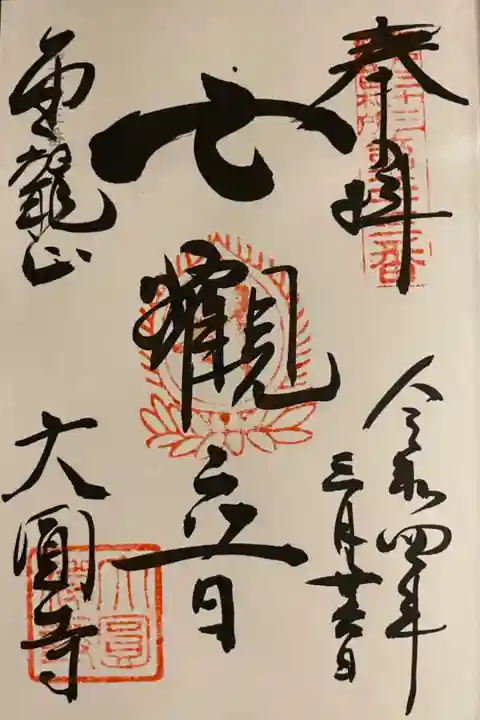 奉拝
令和四年
三月廿日
七觀音
金龍山
大圓寺